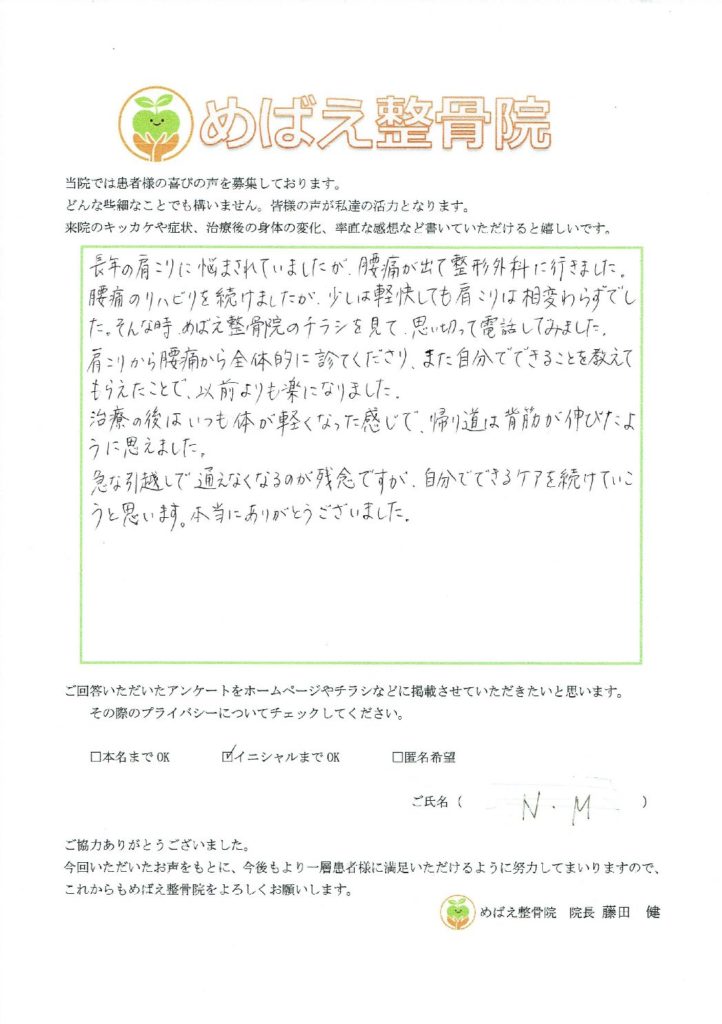 めばえ整骨院
当院では患者様の喜びの声を募集しております。
どんな些細なことでも構いません。皆様の声が私達の活力となります。
来院のキッカケや症状、治療後の身体の変化、率直な感想など書いていただけると嬉しいです。
長年の肩こりに悩まされていましたが、腰痛が出て整形外科に行きました。
腰痛のリハビリを続けましたが、少しは軽快しても肩こりは相変わらずでし
た。そんな時、めばえ整骨院のチラシを見て、思い切って電話してみました。
肩こりから腰痛から全体的に診てくださり、また自分でできることを教えて
もらえたことで、以前よりも楽になりました。
治療の後はいつも体が軽くなった感じで、帰り道は背筋が伸びたよ
うに思えました。
急な引越しで通えなくなるのが残念ですが、自分でできるケアを続けていこ
うと思います。本当にありがとうございました。
ご回答いただいたアンケートをホームページやチラシなどに掲載させていただきたいと思います。
その際のプライバシーについてチェックしてください。
□本名までOK ☑イニシャルまでOK □匿名希望
ご氏名（ N・M ）
ご協力ありがとうございました。
今回いただいたお声をもとに、今後もより一層患者様に満足いただけるように努力してまいりますので、
これからもめばえ整骨院をよろしくお願いします。
めばえ整骨院 院長 藤田 健